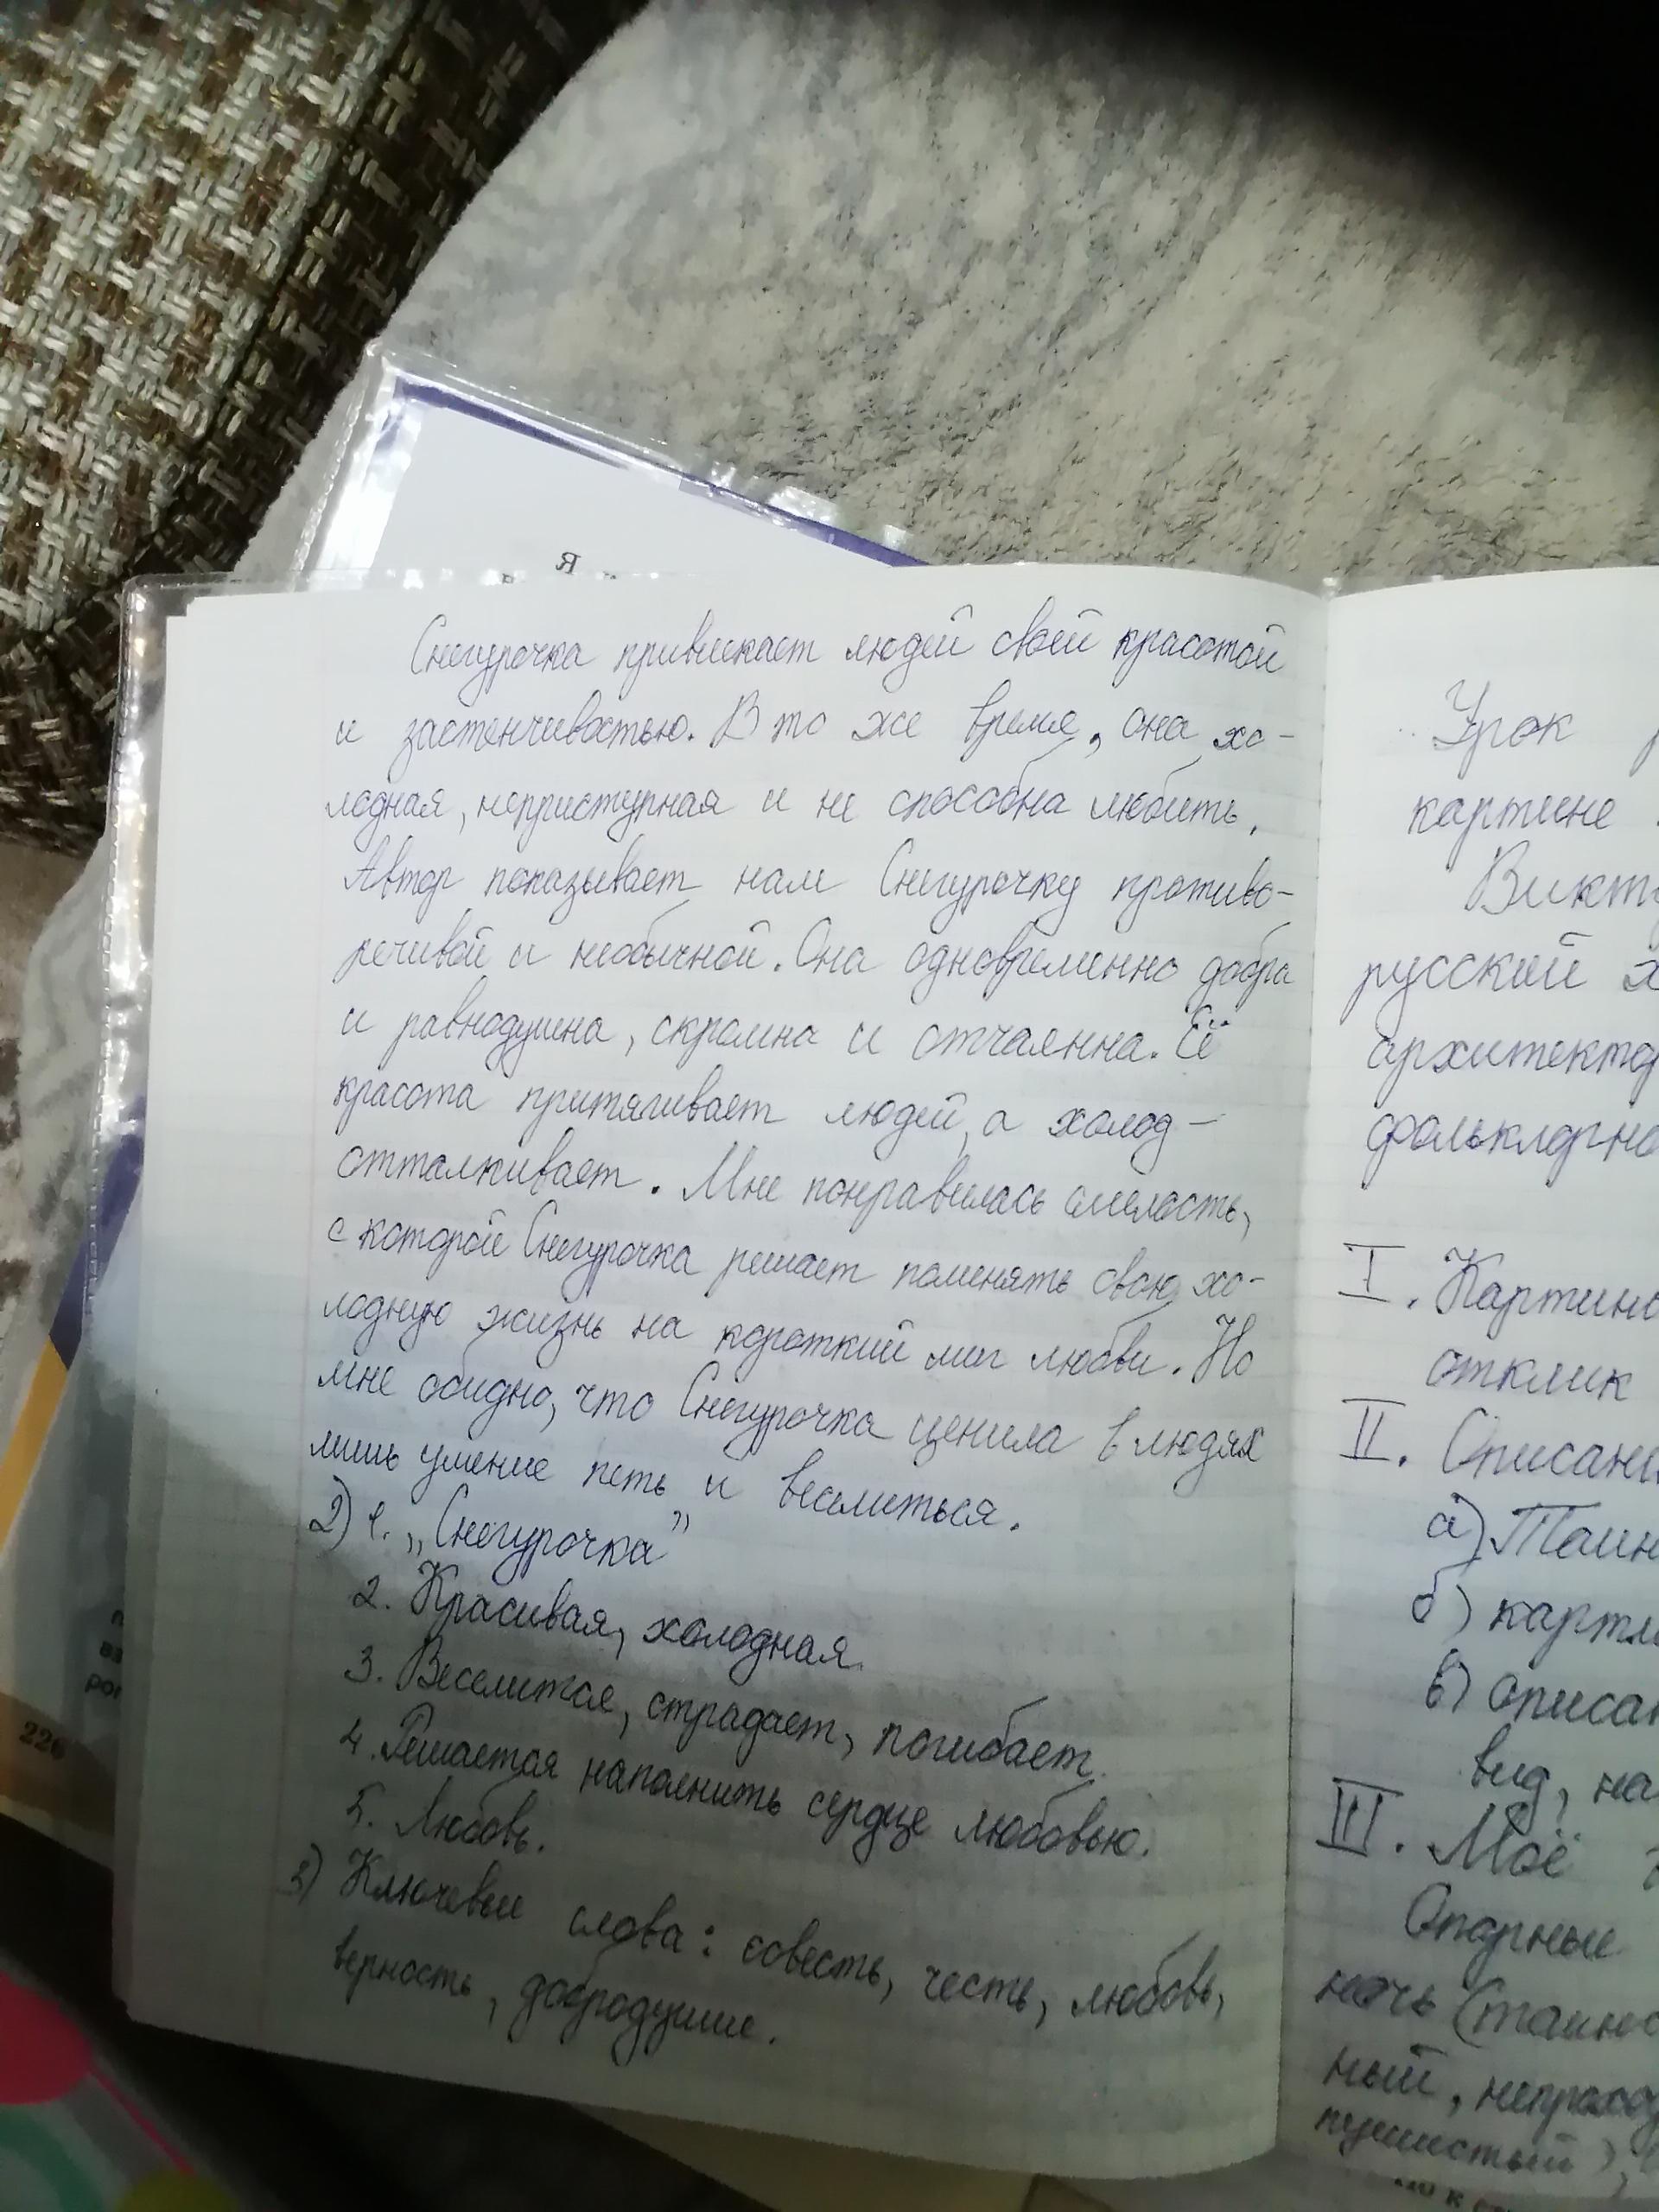 Снегурочка привлекает людей своей красотой
и застенчивостью. В то же время, она хо-
лодная, неприступная и не способна любить.
Автор показывает нам Снегурочку противо-
речивой и необычной. Она одновременно добра
и равнодушна, скромна и отчаянна. Её
красота притягивает людей, а холод -
отталкивает. Мне понравилась смелость,
с которой Снегурочка решает поменять свою хо-
лодную жизнь на короткий миг любви. Но
мне обидно, что Снегурочка ценила в людях
лишь умение петь и веселиться.
2) 1. „Снегурочка”
2. Красивая, холодная.
3. Веселится, страдает, погибает.
4. Решается наполнить сердце любовью.
5. Любовь.
3) Ключевые слова: совесть, честь, любовь,
верность, добродушие.
Урок
картине
русский
I. Картина
отклик
II. Описани
а) Таин
б)
в) описан
вид, на
III. Моё
Опорные
ночь (таинс
ный,
пушистый),
Я
226